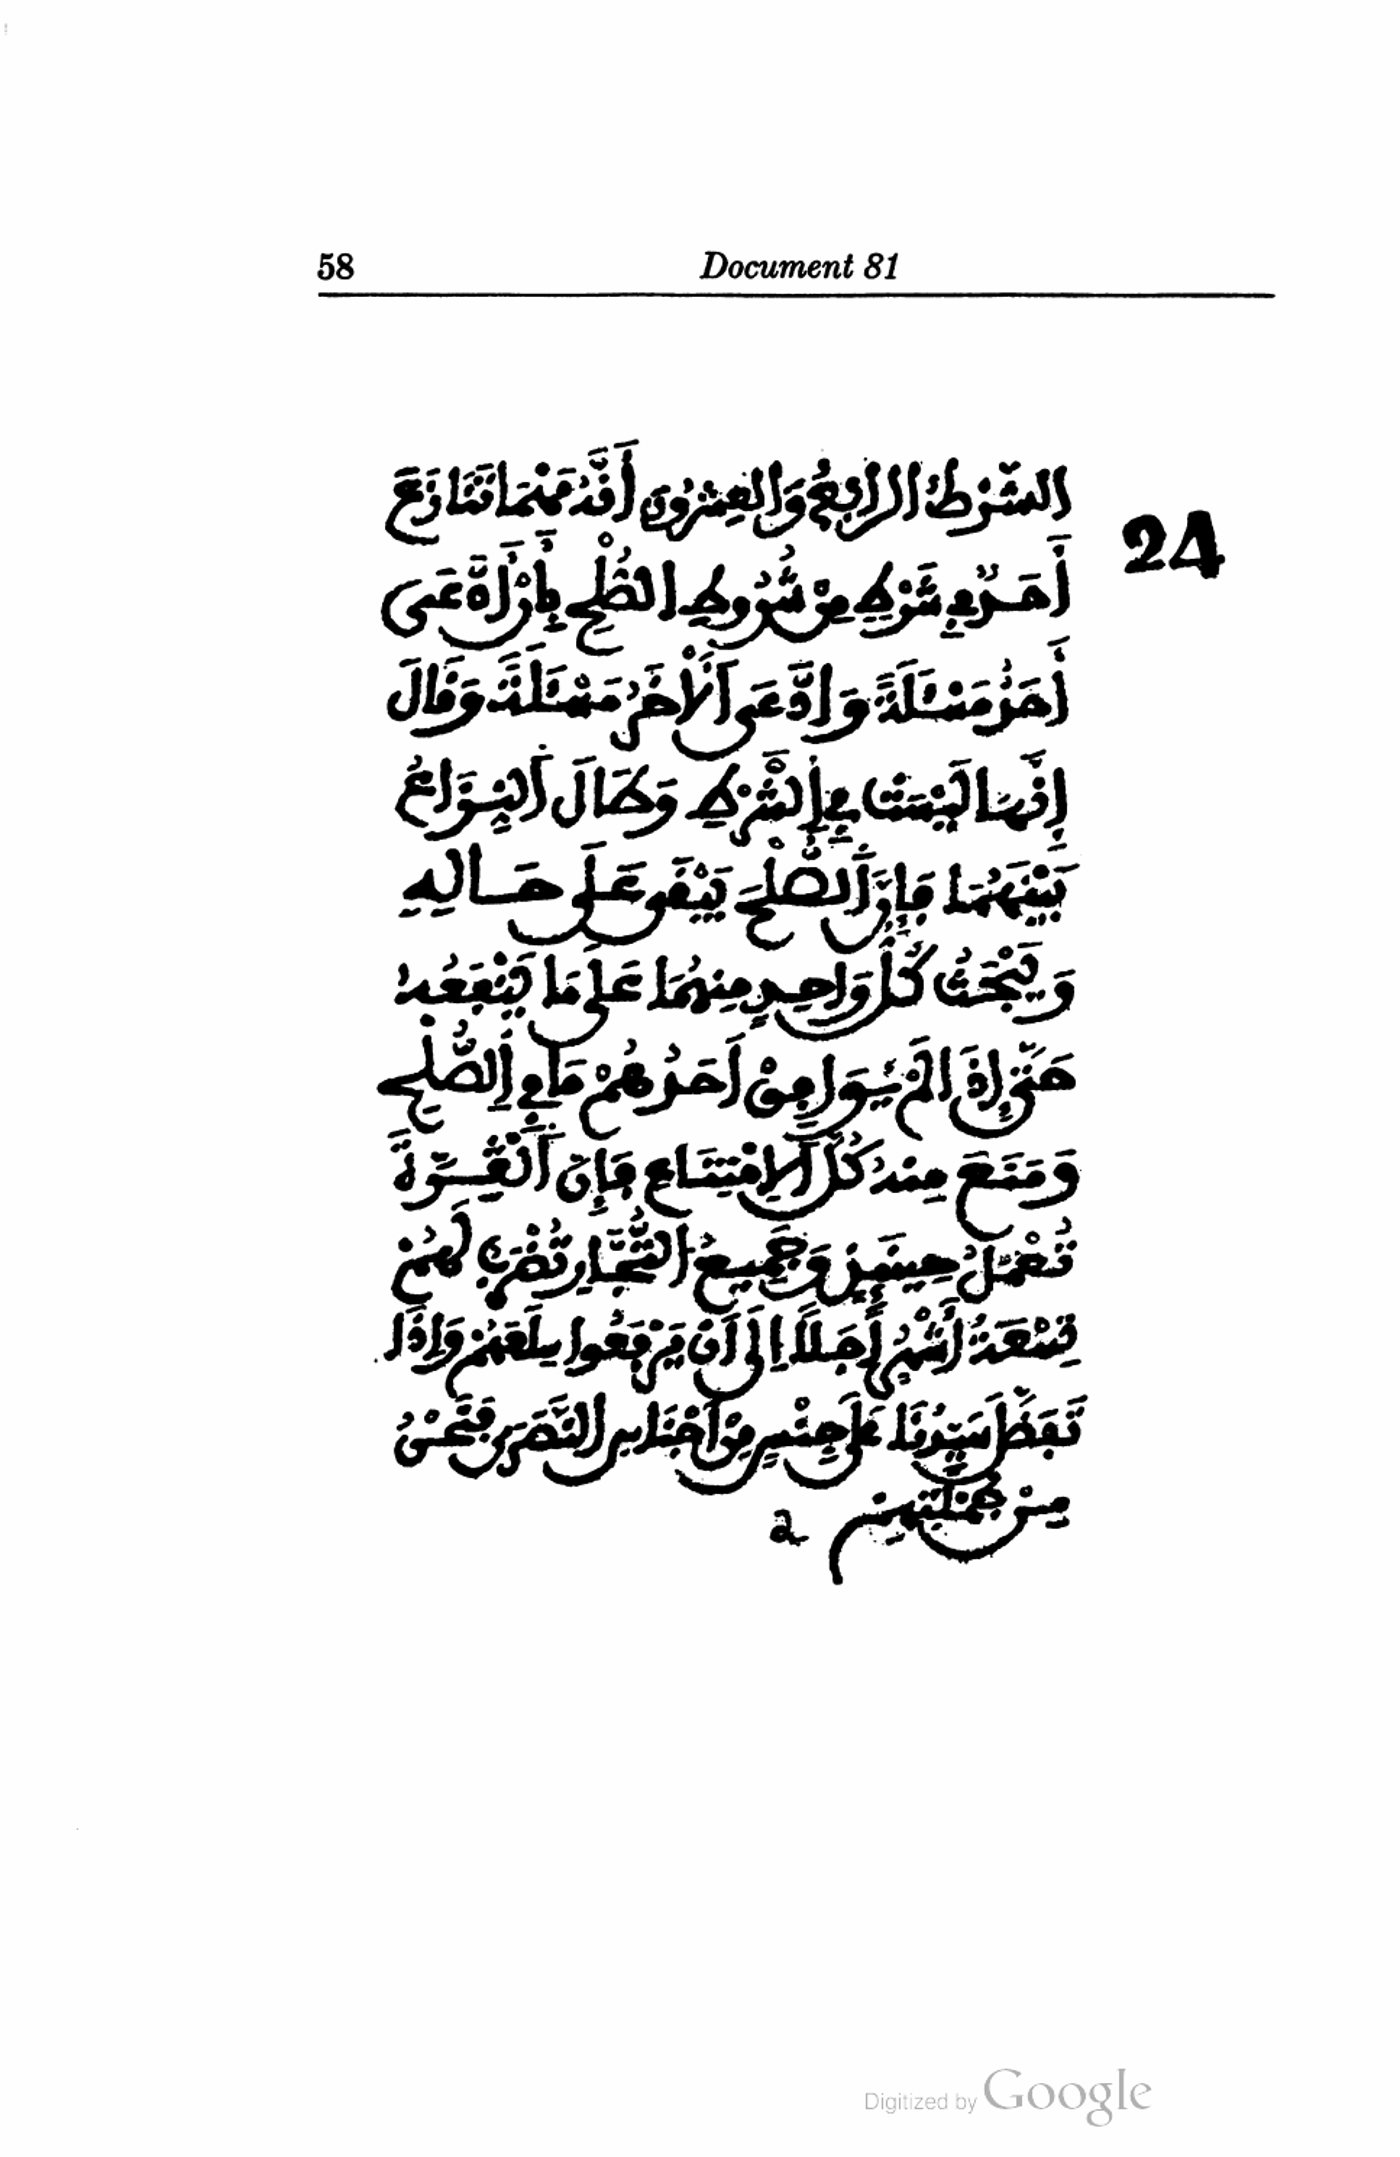 58
Document 81
24
الشَّرْطُ الرَّابِعُ وَالعِشْرُونَ أَنَّهُ مَهْمَا تَنَازَعَ
أَحَدٌ فِي شَرْطٍ مِنْ شُرُوطِ الصُّلْحِ بِأَنْ ادَّعَى
أَحَدٌ مَسْئَلَةً وَادَّعَى اَلْأَخَرُ مَسْئَلَةً وَقَالَ
إِنَّهَا لَيْسَتْ فِي الشَّرْطِ وَطَالَ اَلنِّزَاعُ
بَيْنَهُمَا فَإِنَّ الصُّلْحَ يَبْقَى عَلَى حَالِهِ
وَيَبْحَثُ كُلُّ وَاحِدٍ مِنْهُمَا عَلَى مَا يَنْفَعُهُ
حَتَّى إِذَا لَمْ يُوَافِقْ أَحَدُهُمْ مَا فِي الصُّلْحِ
وَمَنَعَ مِنْهُ كُلَّ الِامْتِنَاعِ فَإِنَّ اَلْقُوَّةَ
تُعْمَلُ حِينَئِذٍ وَجَمِيعُ التُّجَّارِ تُضْرَبُ لَهُمْ
تِسْعَةُ أَشْهُرٍ أَجَلًا إِلَى أَنْ يَرْفَعُوا سِلَعَهُمْ وَإِذَا
تَفَضَّلَ سَيِّدُنَا عَلَى جِنْسٍ مِنْ أَجْنَاسِ النَّصَرَى فَنَحْنُ
مِنْ جُمْلَتِهِمْ
Digitized by Google